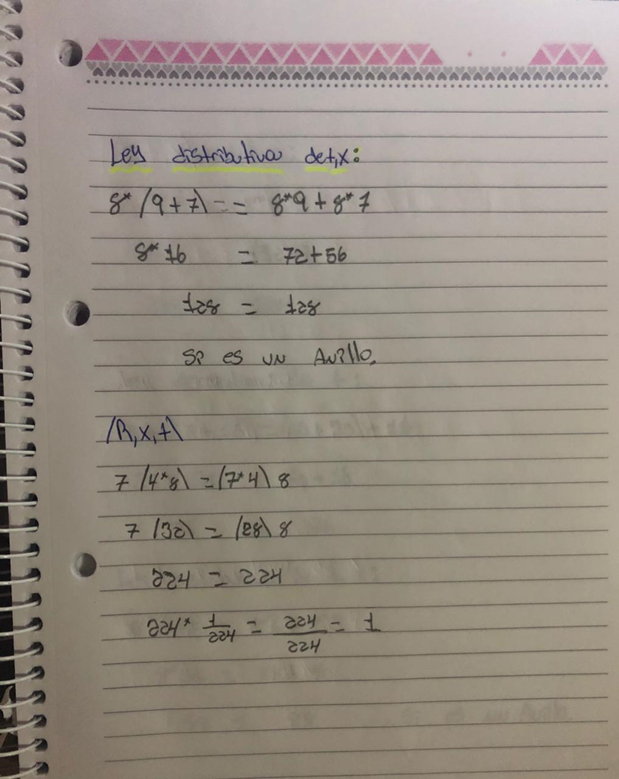 Ley distributiva de+,x:
8*(9+7) == 8*9+8*7
8*16 = 72+56
128 = 128
Si es un Anillo.
(R,x,+)
7 (4*8) = (7*4) 8
7 (32) = (28) 8
224 = 224
224* 1/224 = 224/224 = 1